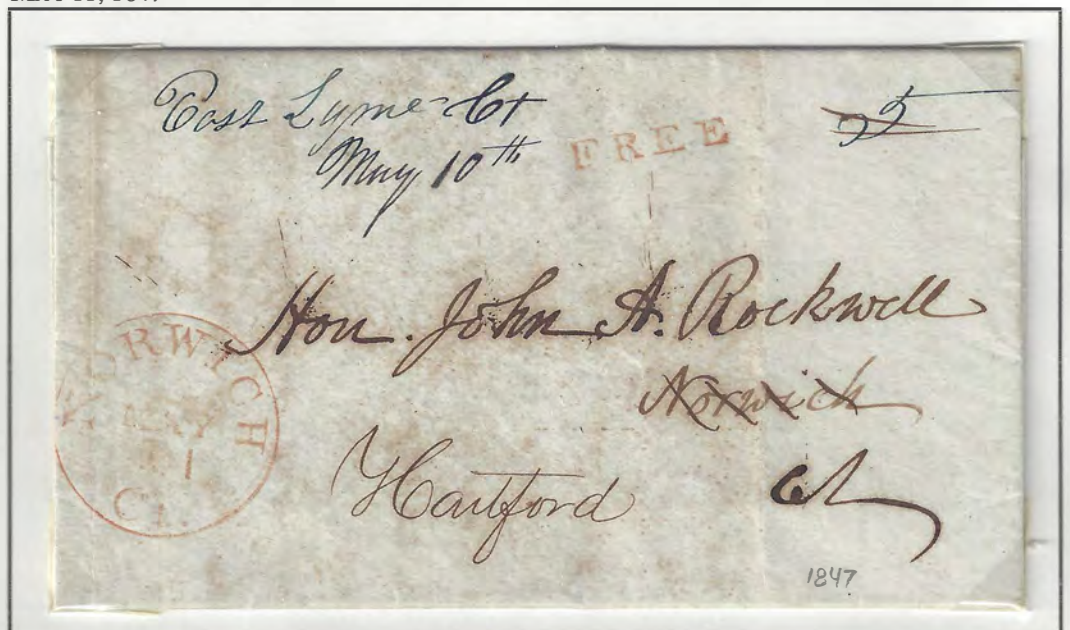 East Lyme Ct
May 10th
FREE
5
Hon. John A. Rockwell
Norwich
Hartford Ct
NORWICH
MAY
11
CT.
1847